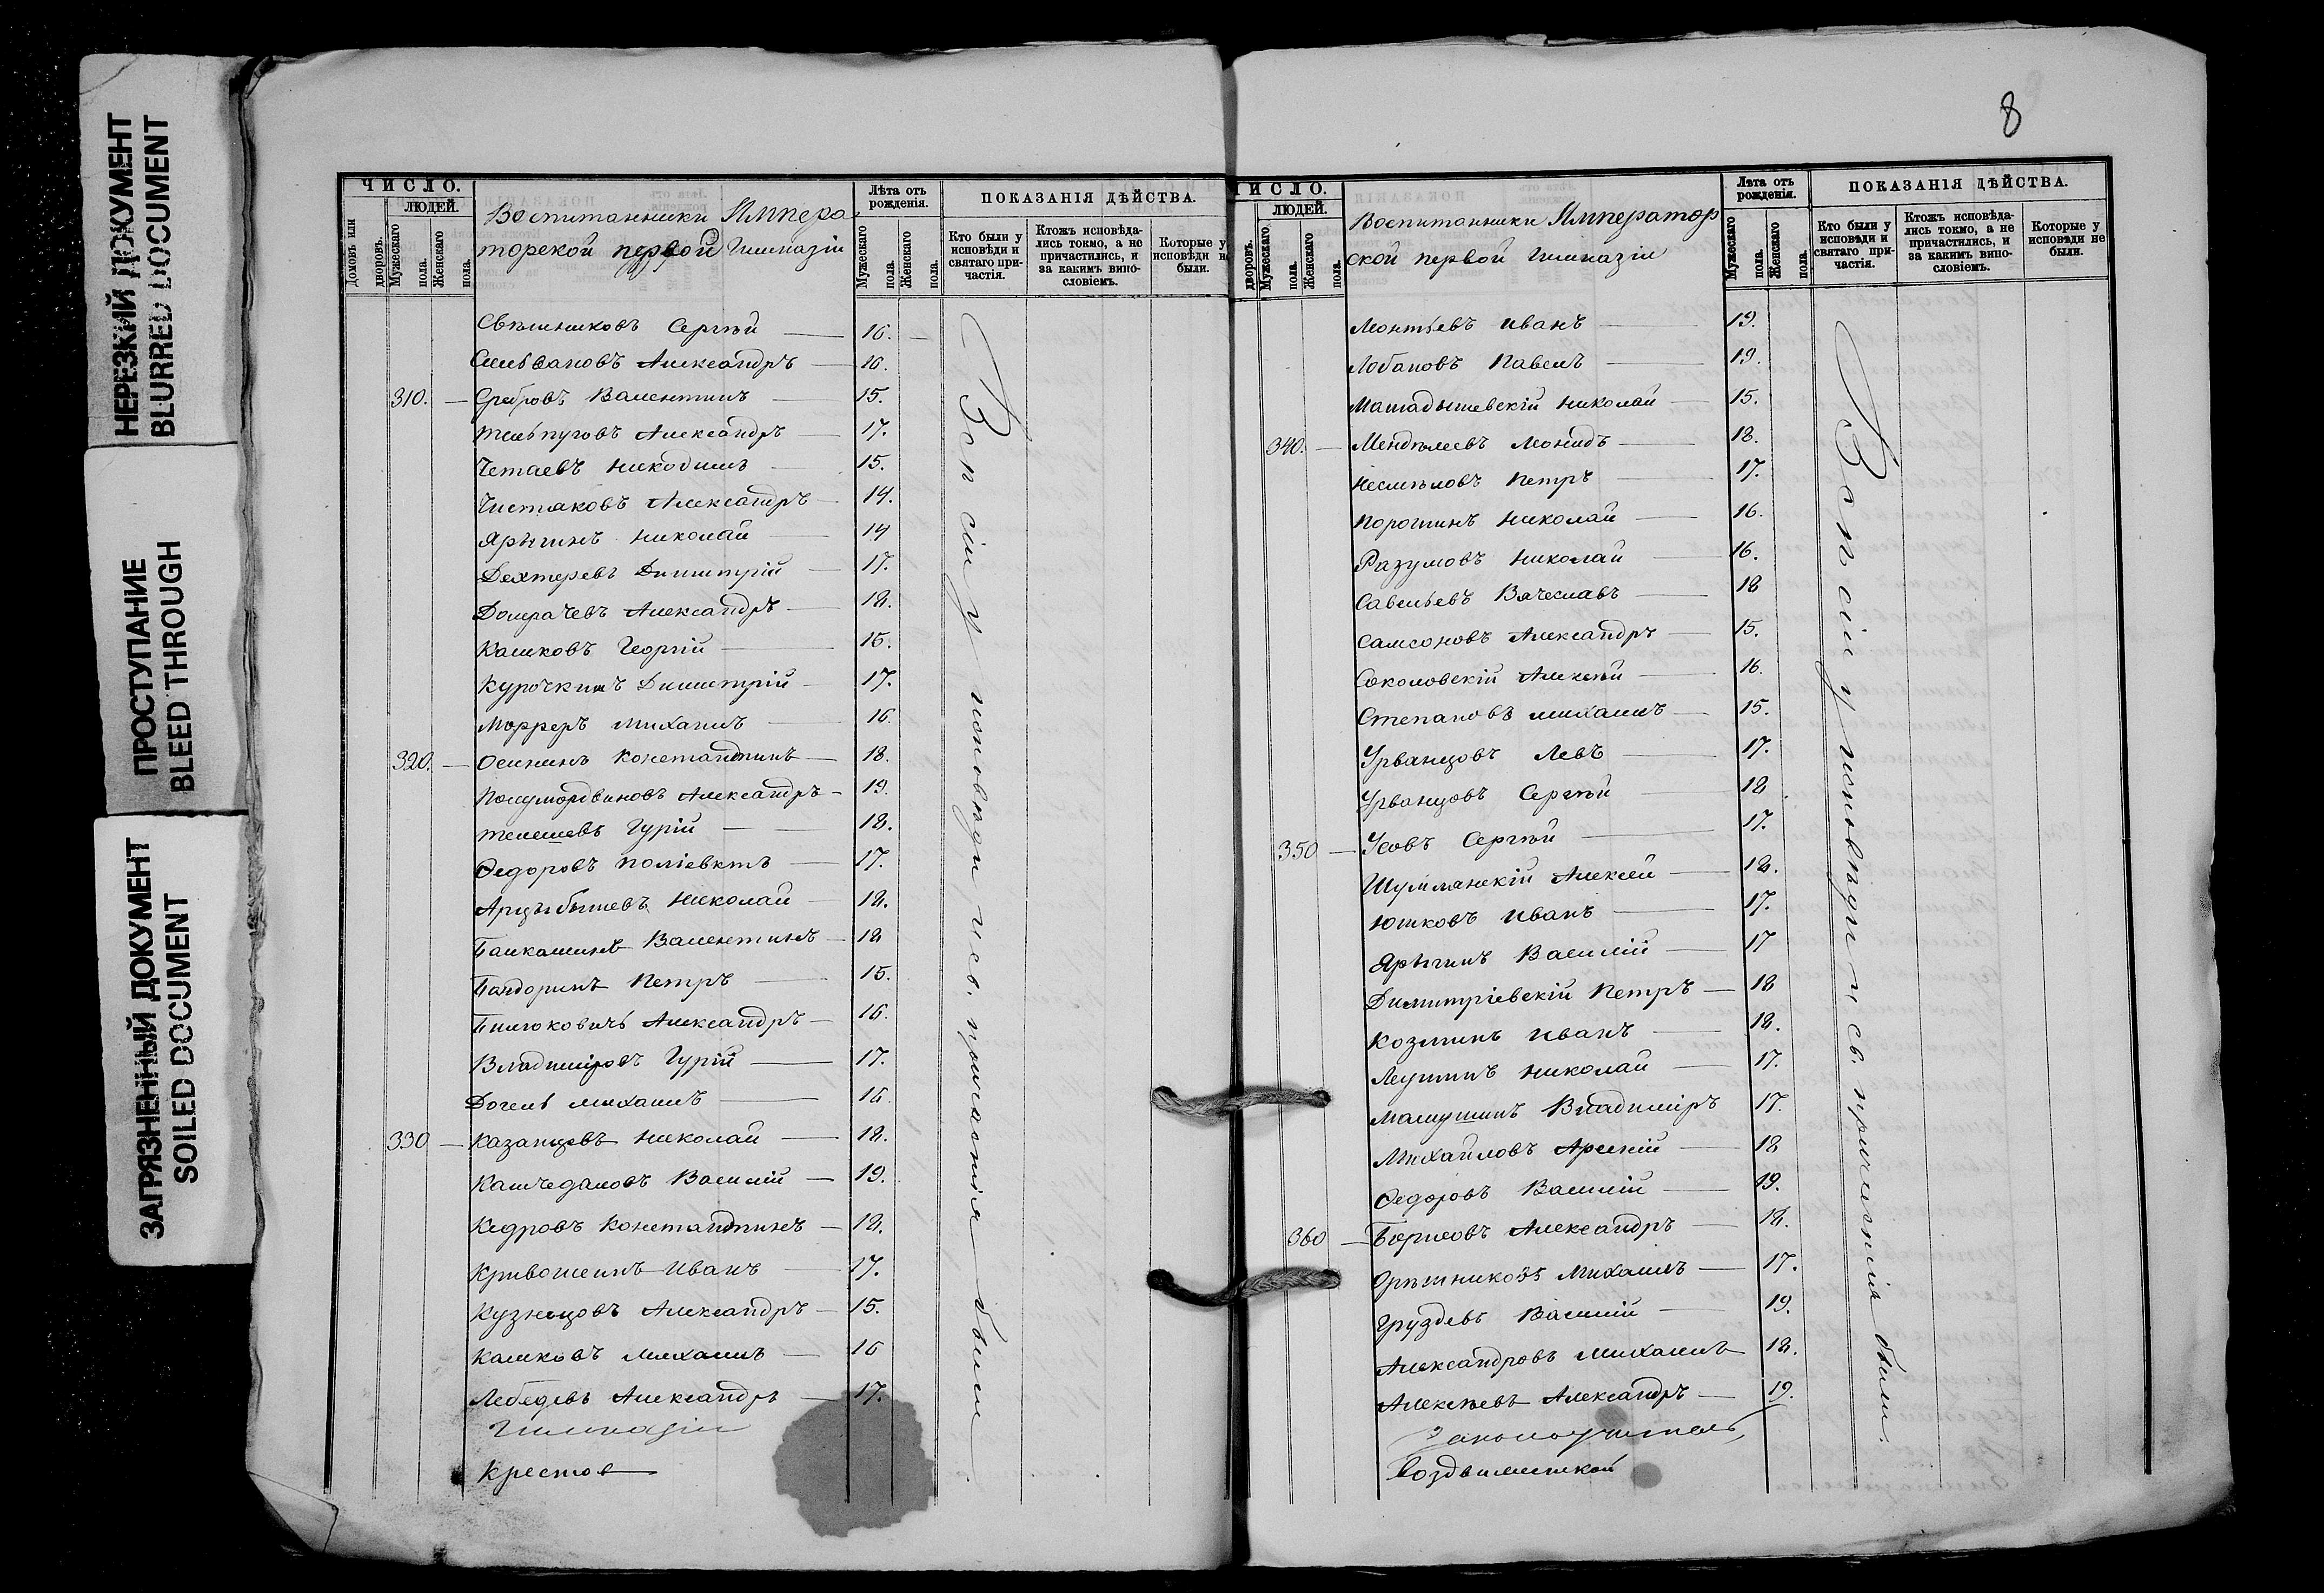 НЕРЕЗКИЙ ДОКУМЕНТ
BLURRED DOCUMENT
ПРОСТУПАНИЕ
BLEED THROUGH
ЗАГРЯЗНЕННЫЙ ДОКУМЕНТ
SOILED DOCUMENT
ЧИСЛО.
ЛЮДЕЙ.
Домовъ или дворовъ.
Мужескаго пола.
Женскаго пола.
Воспитанники Импера
торской первой Гимназіи
Лѣта отъ рожденія.
Мужескаго пола.
Женскаго пола.
ПОКАЗАНІЯ ДѢЙСТВА.
Кто были у исповѣди и святаго при-частія.
Ктожъ исповѣда-лись токмо, а не причастились, и за какимъ вино-словіемъ.
Которые у исповѣди не были.
Свѣшниковъ Сергѣй — 16.
Сильвановъ Александръ — 16.
310. — Сребровъ Валентинъ — 15.
Тельпуговъ Александръ — 17.
Четаевъ Никодимъ — 15.
Чистяковъ Александръ — 14.
Ярыгинъ Николай — 14
Дехтеревъ Димитрій — 17.
Домрачевъ Александръ — 18.
Калмковъ Георгій — 15.
Курочкинъ Димитрій — 17.
Морреръ Михаилъ — 16.
320. — Осининъ Константинъ — 18.
Полумордвиновъ Александръ — 19.
Телешевъ Гурій — 18.
Ѳедоровъ Поліевктъ — 17.
Арцыбышевъ Николай — 18.
Балкашинъ Валентинъ — 18
Бандоринъ Петръ — 15.
Билюковичъ Александръ — 16.
Владиміровъ Гурій — 17.
Догель Михаилъ — 16.
330 — Казанцевъ Николай — 18.
Василій — 19.
Кедровъ Константинъ — 18.
Кривошеинъ Иванъ — 17.
Кузнецовъ Александръ — 15.
Михаилъ — 16
Лебедевъ Александръ — 17.
Гимназіи
Крестов
Всѣ сіи у исповѣди и св. причастія были.
8
ЧИСЛО.
ЛЮДЕЙ.
дворовъ.
Мужескаго пола.
Женскаго пола.
Воспитанники Император
ской первой Гимназіи
Лѣта отъ рожденія.
Мужескаго пола.
Женскаго пола.
ПОКАЗАНІЯ ДѢЙСТВА.
Кто были у исповѣди и святаго при-частія.
Ктожъ исповѣда-лись токмо, а не причастились, и за какимъ вино-словіемъ.
Которые у исповѣди не были.
Леонтьевъ Иванъ — 19.
Лобановъ Павелъ — 19.
Николай — 15.
340. — Менделеевъ Леонидъ — 18.
Несмѣловъ Петръ — 17.
Порошинъ Николай — 16.
Разумовъ Николай — 16.
Савельевъ Вячеславъ — 18
Самсоновъ Александръ — 15.
Соколовскій Алексѣй — 16.
Степановъ Михаилъ — 15.
Урванцовъ Левъ — 17.
Урванцовъ Сергѣй — 18
350 — Усовъ Сергѣй — 17.
Шумлянскій Алексей — 18.
Юшковъ Иванъ — 17.
Ярыгинъ Василій — 17
Димитріевскій Петръ — 18
Козминъ Иванъ — 18.
Леушинъ Николай — 17.
Владиміръ 17.
Михайловъ Арсеній — 18
Ѳедоровъ Василій — 19.
360 — Борисовъ Александръ — 18.
Орѣшниковъ Михаилъ — 17.
Груздевъ Василій — 19.
Александровъ Михаилъ 18.
Алексѣевъ Александръ — 19.
Законоучитель
Воздвиженской
Всѣ сіи у исповѣди и св. причастія были.